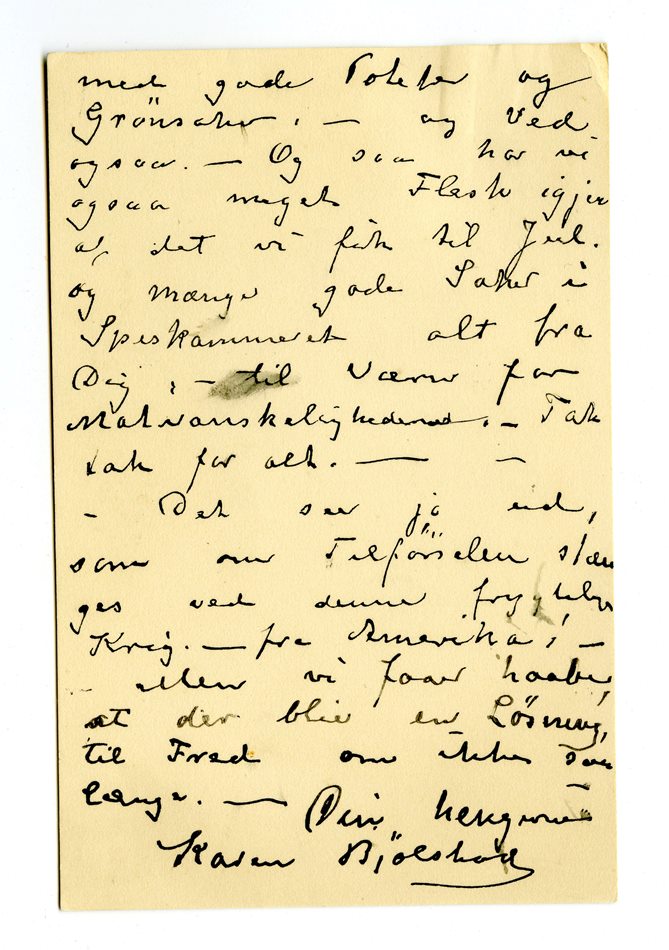 med gode Poteter og
Grönsaker. — og Ved
ogsaa. — Og saa har vi
ogsaa meget Flæsk igjen
af det vi fik til Jul.
og mange gode Saker i
Speskammeret alt fra
Dig, — til Værn for
Matvanskelighederne. — Tak
tak for alt. — —
— Det ser jo ud,
som om Tilförselen stæn
ges ved denne frygtelige
Krig. — fra Amerika! —
— Men vi faar haabe
at der blir en Lösning,
til Fred om ikke saa
længe. — Din hengivne
Karen Bjölstad